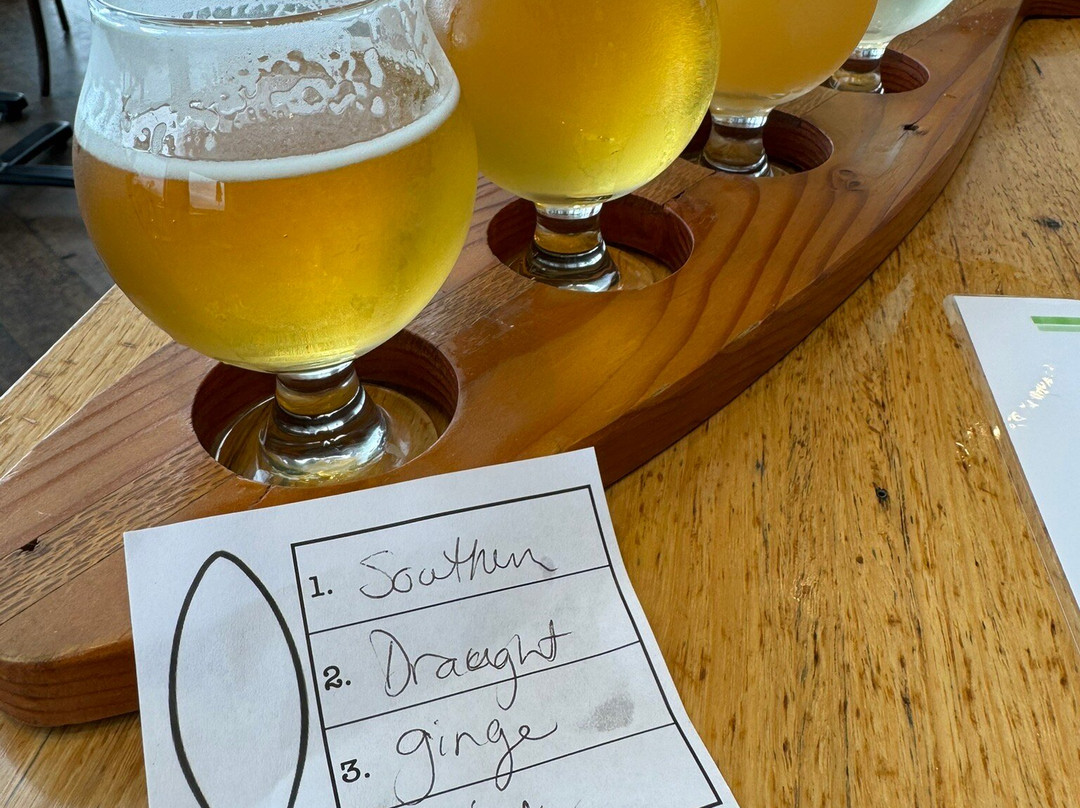 1. Southern
2. Draught
3. ginge